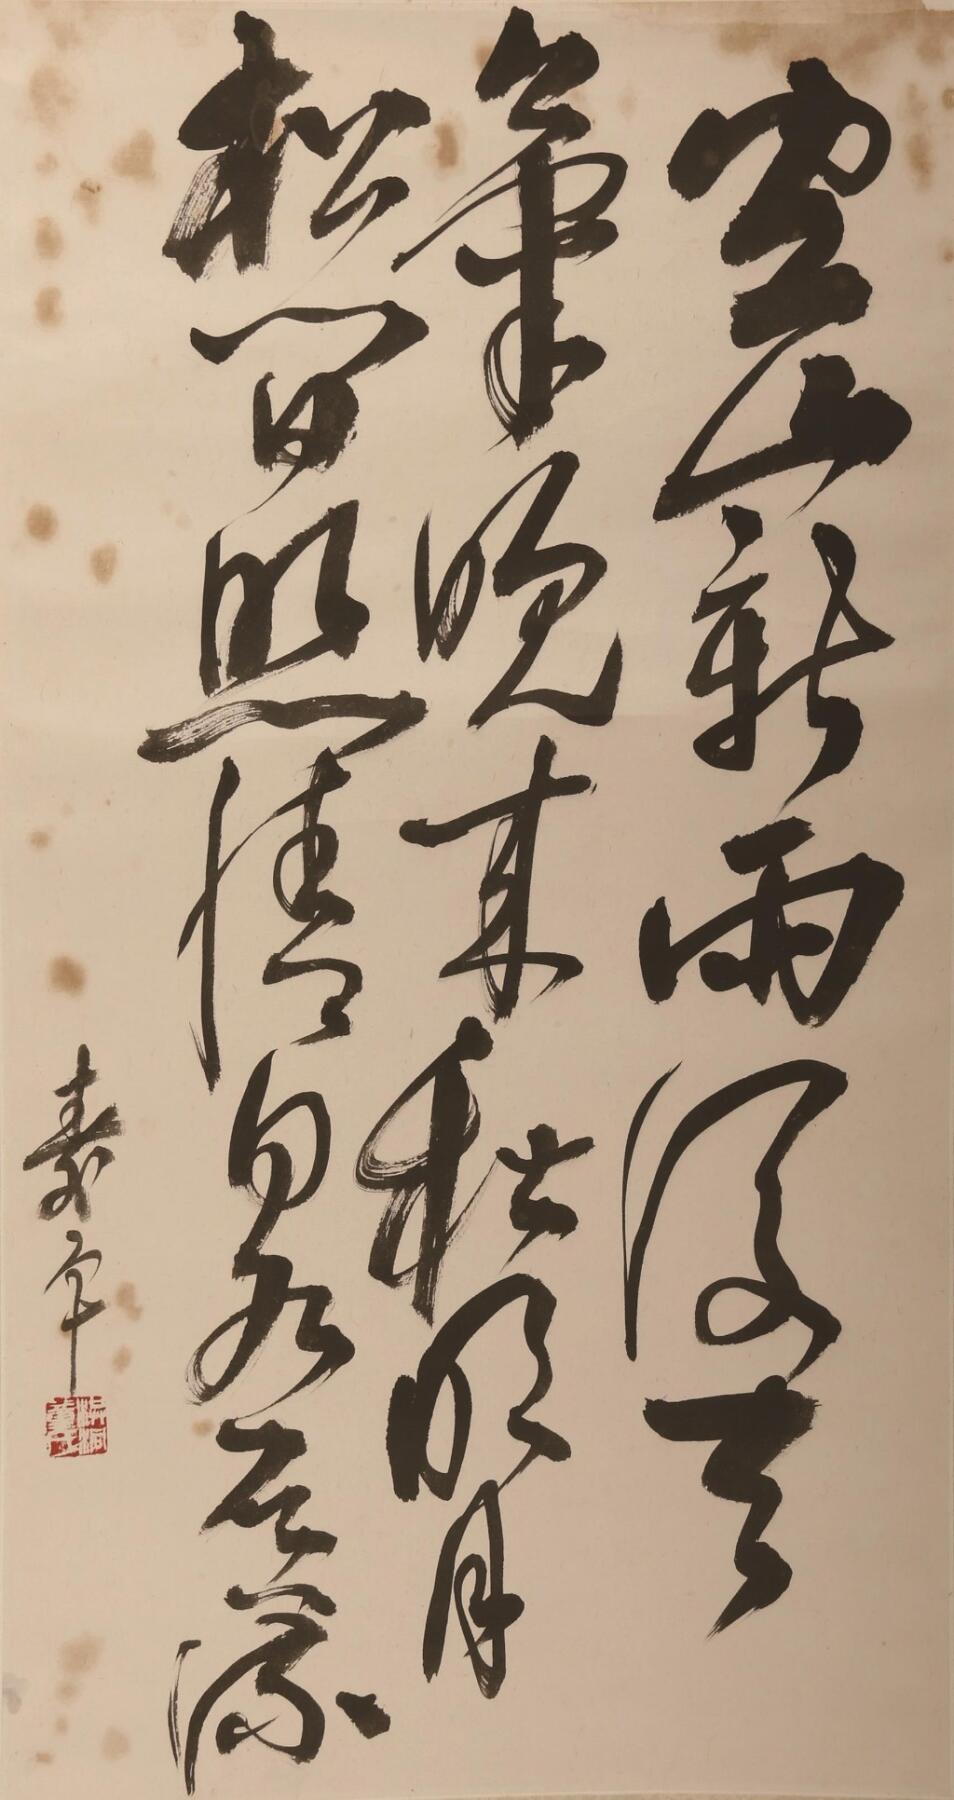 空山新雨後天
氣晚來秋明月
松間照清泉石上流
壽平